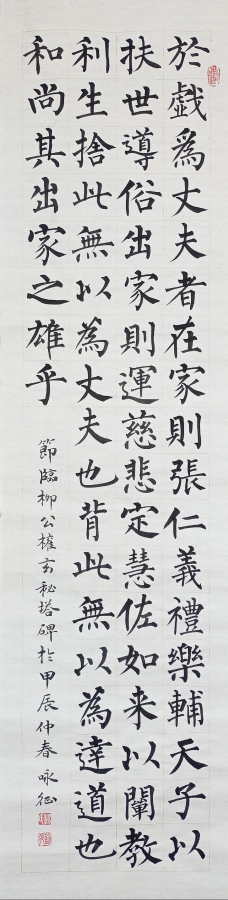 於戲為丈夫者在家則張仁義禮樂輔天子以
扶世導俗出家則運慈悲定慧佐如来以闡教
利生捨此無以為丈夫也背此無以為達道也
和尚其出家之雄乎
節臨柳公權玄秘塔碑於甲辰仲春咏征